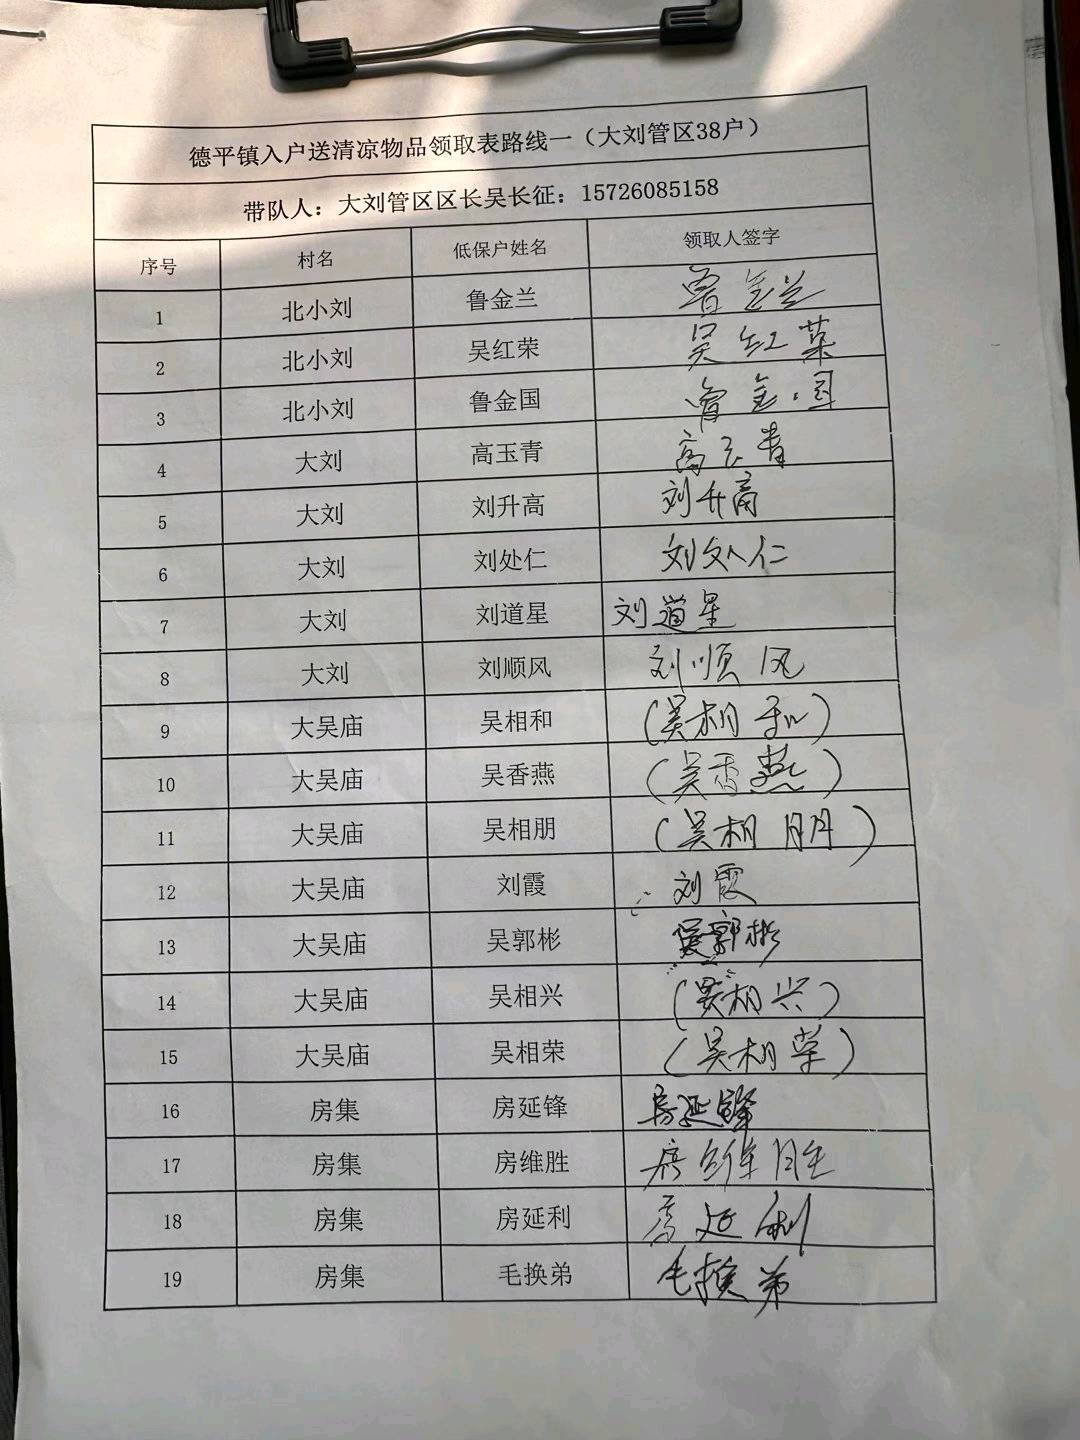 德平镇入户送清凉物品领取表路线一（大刘管区38户）
带队人：大刘管区区长吴长征：15726085158
序号 村名 低保户姓名 领取人签字
1 北小刘 鲁金兰 鲁金兰
2 北小刘 吴红荣 吴红荣
3 北小刘 鲁金国 鲁金国
4 大刘 高玉青 高玉青
5 大刘 刘升高 刘升高
6 大刘 刘处仁 刘处仁
7 大刘 刘道星 刘道星
8 大刘 刘顺风 刘顺风
9 大吴庙 吴相和 （吴相和）
10 大吴庙 吴香燕 （吴香燕）
11 大吴庙 吴相朋 （吴相朋）
12 大吴庙 刘霞 刘霞
13 大吴庙 吴郭彬 吴郭彬
14 大吴庙 吴相兴 （吴相兴）
15 大吴庙 吴相荣 （吴相荣）
16 房集 房延锋 房延锋
17 房集 房维胜 房维胜
18 房集 房延利 房延利
19 房集 毛换弟 毛换弟